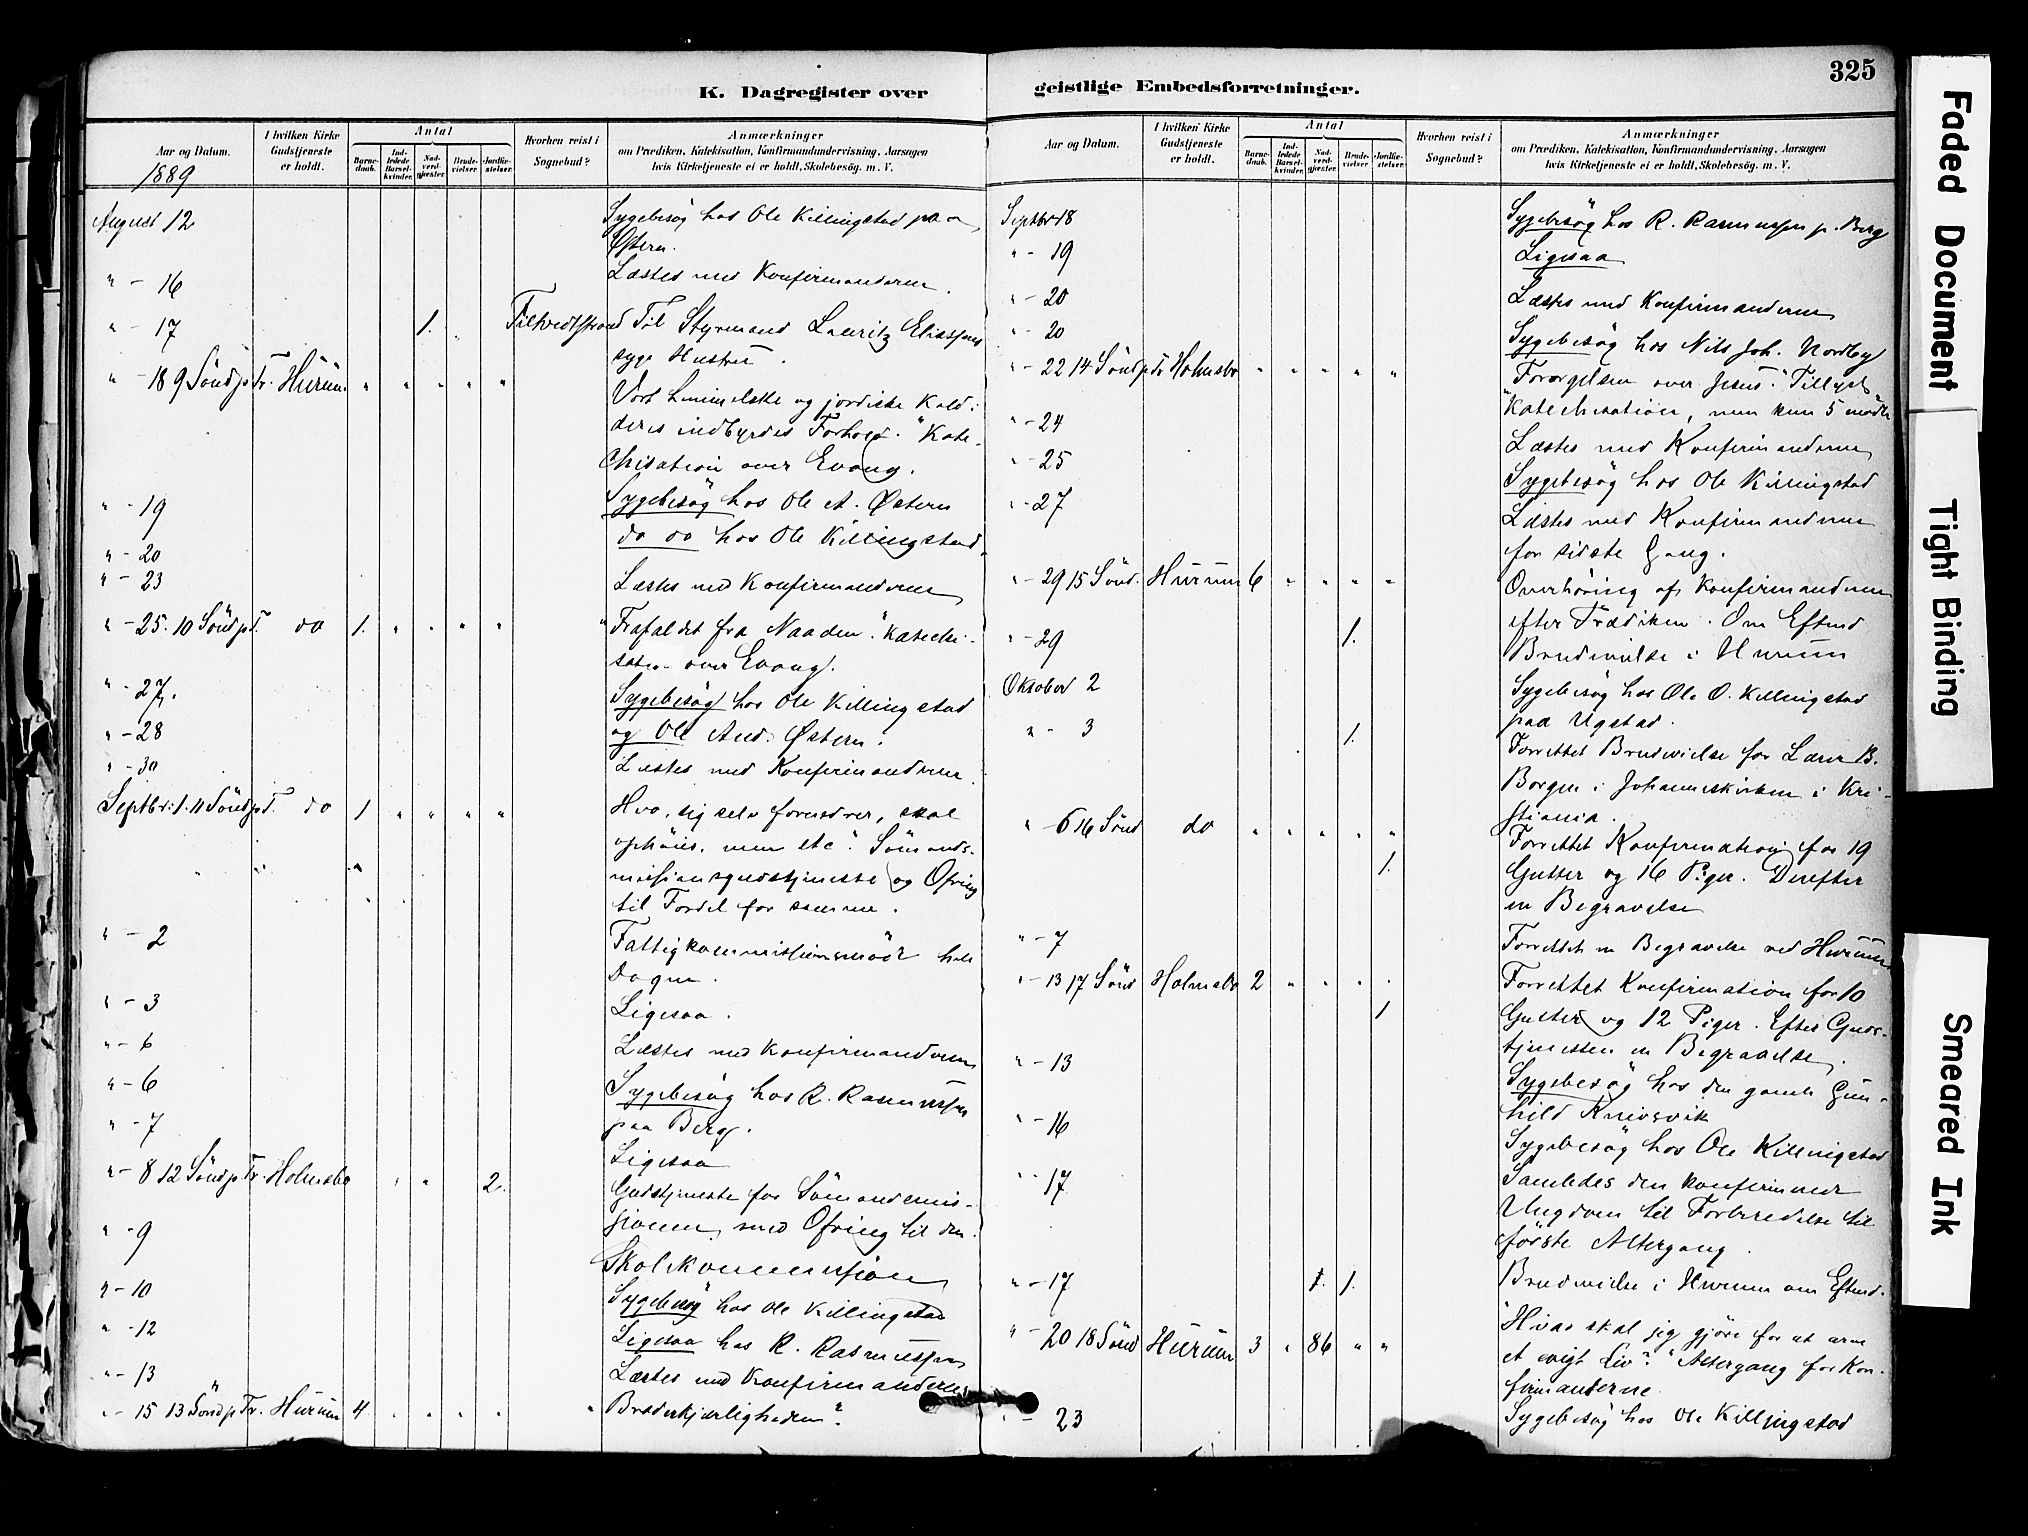 325
K. Dagregister over geistlige Embedsforretninger.
Aar og Datum.
1889
I hvilken Kirke Gudstjeneste er holdt.
Antal
Barnedaab.
Indledede Barselkvinder.
Nadverdgjester.
Brudevielser.
Jordfæstelser.
Hvorhen reist i Sognebud?
Anmærkninger
om Prædiken, Katekisation, Konfirmandundervisning, Aarsagen
hvis Kirketjeneste ei er holdt, Skolebesøg. m. V.
August 12 Sygebesøg hos Ole Killingstad paa
Østern.
" - 16 Læstes med Konfirmanderne.
" - 17 1. Til Styrmand Lauritz Eliassens
syge Hustru.
" - 18 9 Sönd p. Tr. Hurum " " " " " Vort himmelske og jordiske Kald:
deres indbyrdes Forhold." Kate-
chisation over Evang.
" - 19 Sygebesøg hos Ole A. Østern
" - 20 do do hos Ole Killingstad.
" - 23 Læstes med Konfirmanderne
" - 25. 10 Sönd p T. do 1. " " " " "Frafaldet fra Naaden." Kateche-
sation over Evang.
" - 27. Sygebesøg hos Ole Killingstad
" - 28 og Ole And. Østern.
" - 30 Læstes med Konfirmanderne.
Septbr: 1. 11 Sönd p T. do 1 " " " " Hvo, sig selv fornedrer, skal
ophöies, men etc". Sömands-
missionsgudstjeneste og Ofring
til Fordel for samme.
" - 2 Fattigkommissionsmöde hele
Dagen.
" - 3 Ligesaa.
" - 6 Læstes med Konfirmanderne
" - 6 Sygebesøg hos R. Rasmussen
paa Berg.
" - 7 Ligesaa
" - 8 12 Sönd p Tr. Holmsbo " " 2. Gudstjeneste for Sömandsmis-
sionen, med Ofring til den.
" - 9 Skolekommission
" - 10 Sygebesøg hos Ole Killingstad
" - 12 Ligesaa hos R. Rasmussen
" - 13 Læstes med Konfirmanderne
" - 15 13 Sönd p Tr. Hurum 4. " " " " "Broderkjærligheden".
Aar og Datum.
I hvilken Kirke Gudstjeneste er holdt.
Antal
Barnedaab.
Indledede Barselkvinder.
Nadverdgjester.
Brudevielser.
Jordfæstelser.
Hvorhen reist i Sognebud?
Anmærkninger
om Prædiken, Katekisation, Konfirmandundervisning, Aarsagen
hvis Kirketjeneste ei er holdt, Skolebesög. m. V.
Septbr 18 Sygebesøg hos R. Rasmussen p. Berg
" - 19 Ligesaa
" - 20 Læstes med Konfirmanderne
" - 20 Sygebesøg hos Nils Joh. Nordby
" - 22 14 Sönd p Tr Holmsbo " " " " " Forargelsen over Jesus." Tillyst
Katechisation, men kun 5 mødte
" - 24 Læstes med Konfirmanderne
" - 25 Sygebesøg hos Ole Killingstad
" - 27 Læstes med Konfirmanderne
for sidste Gang.
" - 29 15 Sönd. Hurum 6 " " " " Overhøring af Konfirmanderne
efter Prædiken. Om Eftmd
" - 29 1. Brudevielse i Hurum
Oktober 2 Sygebesøg hos Ole O. Killingstad
paa Ugstad.
" - 3 1. Forrettet Brudevielse for Lærer B.
Borgen i Johanneskirken i Kri-
stiania.
" - 6 16 Sönd do " " " " " Forrettet Konfirmation for 19
1. Gutter og 16 Piger. Derefter
en Begravelse
" - 7 Forrettet en Begravelse ved Hurum
" - 13 17 Sönd Holmsbo 2 " " " " Forrettet Konfirmation for 10
1 Gutter og 12 Piger. Efter Guds-
tjenesten en Begravelse.
" - 13 Sygebesøg hos den gamle Gun-
hild Knivsvik
" - 16 Sygebesøg hos Ole Killingstad
" - 17 Samledes den konfirmerede
Ungdom til Forberedelse til
første Altergang.
" - 17 1. 1. Brudevielse i Hurum om Eftmd.
" - 20 18 Sönd Hurum 3 " 86 " " "Hvad skal jeg gjöre for at arve
et evigt Liv". Altergang for Kon-
firmanderne.
" - 23 Sygebesøg hos Ole Killingstad
Faded Document
Tight Binding
Smeared Ink